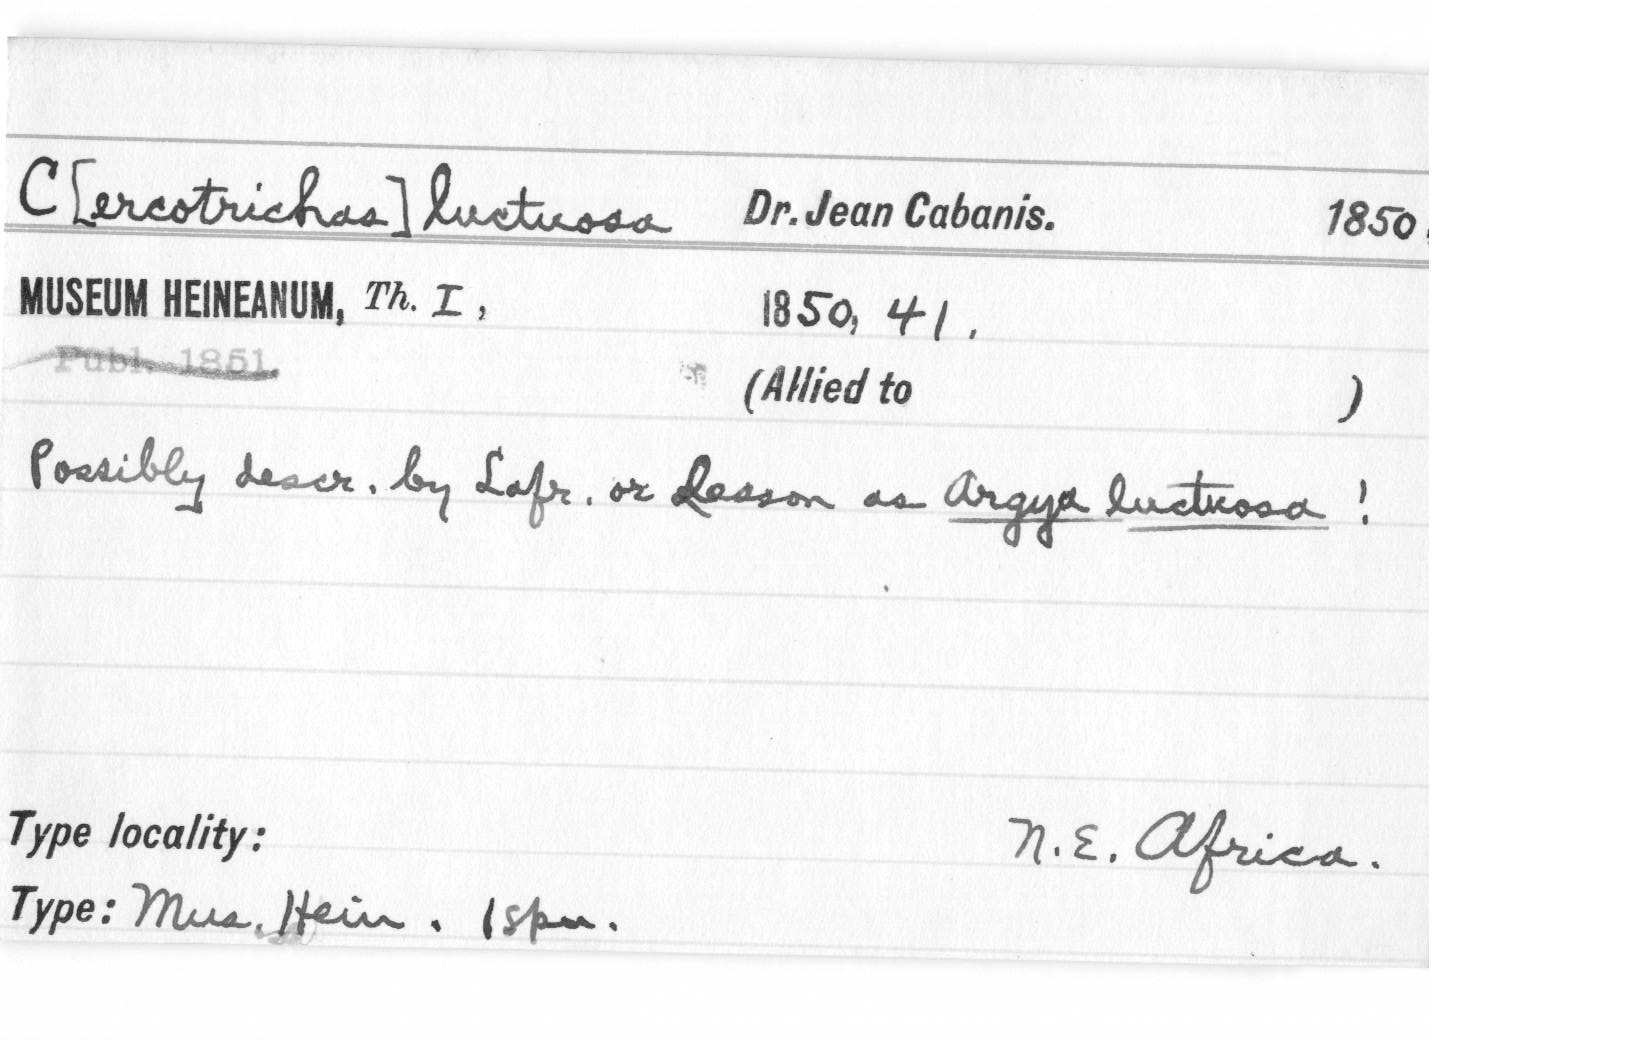 C[ercotrichas] luctuosa Dr. Jean Cabanis. 1850.
MUSEUM HEINEANUM, Th. I, 1850, 41.
Publ. 1851.
(Allied to )
Possibly descr. by Lafr. or Lesson as Argya luctuosa!
Type locality: N.E. Africa.
Type: Mus. Hein. 1 spn.